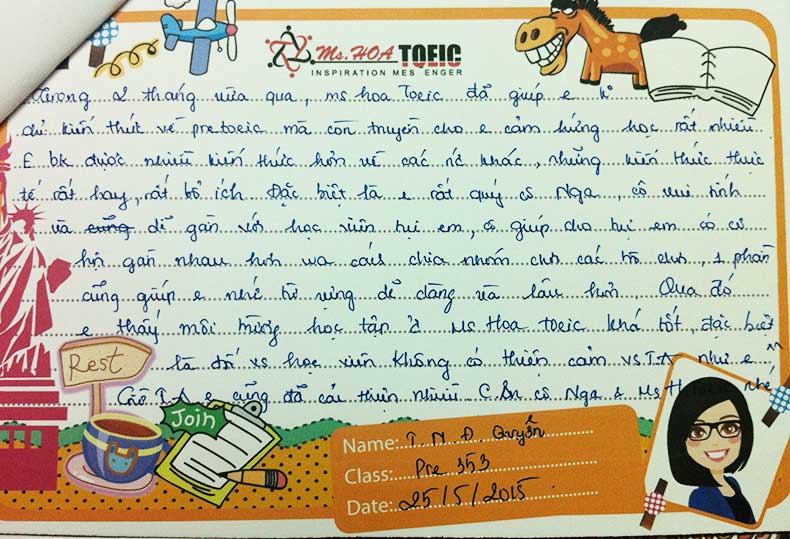 Ms. HOA TOEIC
INSPIRATION MES ENGER
Trong 2 tháng vừa qua, ms hoa Toeic đã giúp e k
chỉ kiến thức về pretoeic mà còn truyền cho e cảm hứng học rất nhiều.
E bk được nhiều kiến thức hơn về các nc khác, những kiến thức thực
tế rất hay, rất bổ ích. Đặc biệt là e rất quý cô Nga, cô vui tính
và cũng dễ gần với học viên tụi em, cô giúp cho tụi em có cơ
hội gần nhau hơn wa cách chia nhóm chơi các trò chơi, 1 phần
cũng giúp e nhớ từ vựng dễ dàng và lâu hơn. Qua đó
e thấy môi trường học tập ở Ms Hoa Toeic khá tốt, đặc biệt
là đối vs học viên không có thiện cảm vs T.A như e ^^
Giờ T.A e cũng đã cải thiện nhiều. C.ơn cô Nga & Ms nhé
Rest
Join
Name: T. N. Đ. Quyên
Class: Pre 353
Date: 25/5/2015